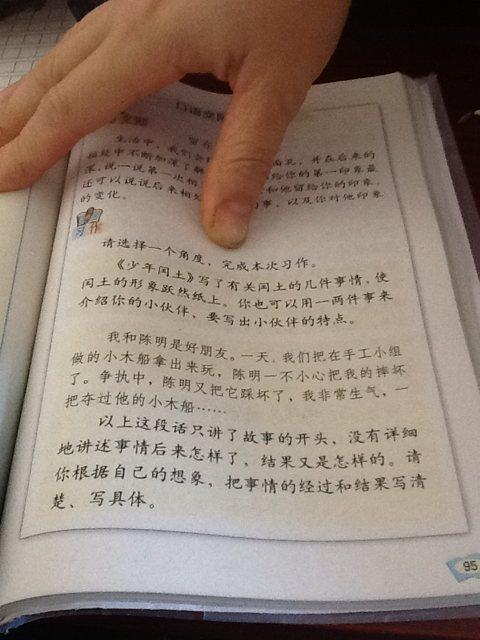 口语交际
生活中，我们会
相处中不断加深了解 面孔，并在后来的
还可以说说后来相处 和他留给你的印象
的变化。 事，以及你对他印象
习作
请选择一个角度，完成本次习作。
《少年闰土》写了有关闰土的几件事情，使
闰土的形象跃然纸上。你也可以用一两件事来
介绍你的小伙伴，要写出小伙伴的特点。
我和陈明是好朋友。一天，我们把在手工小组
做的小木船拿出来玩，陈明一不小心把我的摔坏
了。争执中，陈明又把它踩坏了，我非常生气，一
把夺过他的小木船……
以上这段话只讲了故事的开头，没有详细
地讲述事情后来怎样了，结果又是怎样的。请
你根据自己的想象，把事情的经过和结果写清
楚、写具体。
95